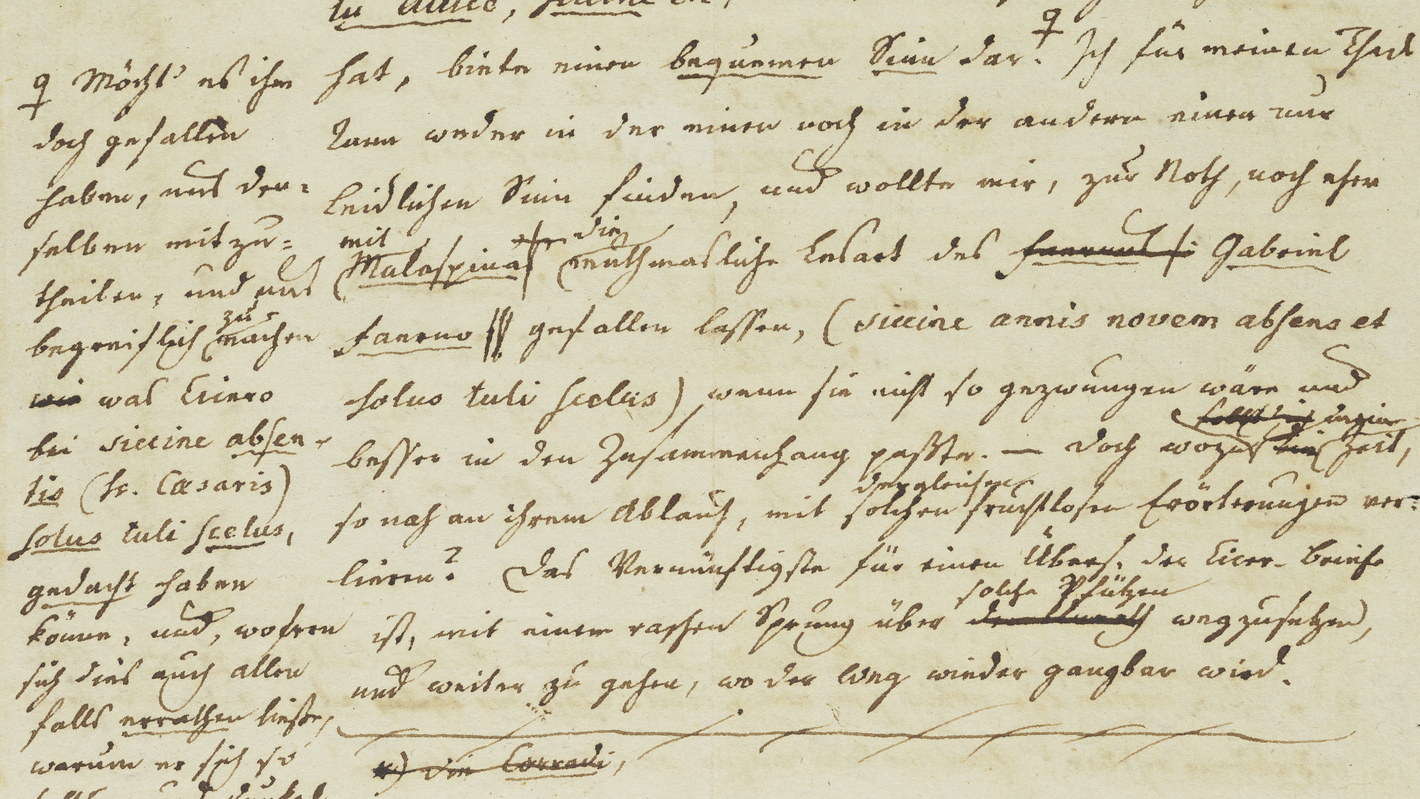 hat, biete einen bequemen Sinn dar. ♀ Ich für meinen Theil
kann weder in der einen noch in der andern einen nur
leidlichen Sinn finden, und wollte mir, zur Noth, noch eher
mit die
(Malaspina muthmasliche Lesart des Gabriel
Faerno gefallen lassen, (siccine annis novem absens et
solus tuli scelus) wenn sie nicht so gezwungen wäre und
besser in den Zusammenhang paßte. — Doch wozu Zeit,
dergleichen
so nah an ihrem Ablauf, mit solchen fruchtlosen Erörterungen ver-
lieren? Das Vernünftigste für einen Übers. der Cicer. Briefe
solche Pfützen
ist, mit einem raschen Sprung über wegzusetzen,
und weiter zu gehen, wo der Weg wieder gangbar wird.
*) Corradi,
♀ Möcht' es ihm
doch gefallen
haben, uns den-
selben mitzu-
theilen, und uns
zu
begreiflich machen
wie was Cicero
bei siccine absen-
tis (sc. Caesaris)
solus tuli scelus,
gedacht haben
könne, und, wofern
sich dies auch allen
falls errathen ließe,
warum er sich so